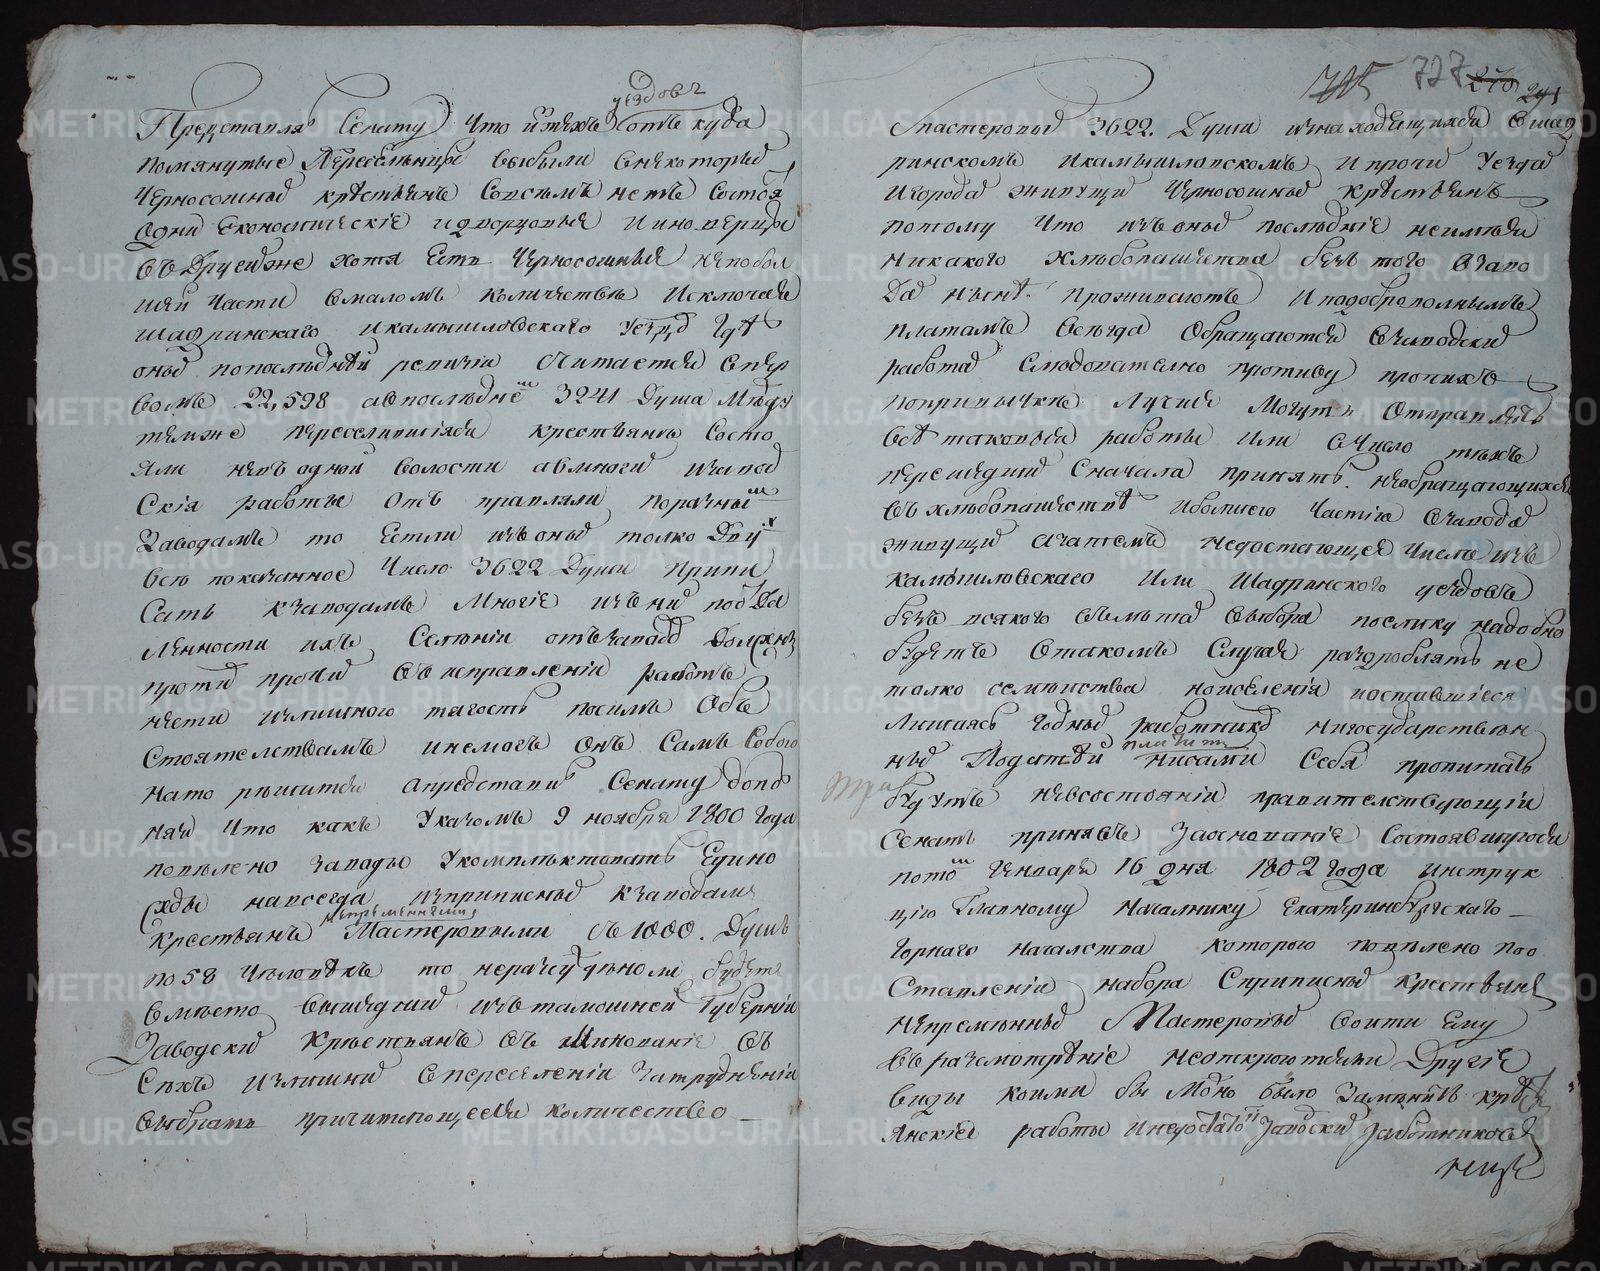 уездовъ
Представля Сенату что изтѣхъ отъ куда
помянутые Переселенцы выбыли внѣкоторыхъ
черносошныхъ крестьянъ совсѣмъ нетъ состоя
одни Економическіе идворцовыяИиноверцы
въ Другихже хотя Есть Черносошныя нѣпобол
шей части вмаломъ количествѣ Исключая
шадринскаго икамышловскаго уездъ гдѣ
оныхъ попослѣдней ревизіи считается впер
вомъ 22,598 авпослѣднемъ 3241 Душа Между
темже переселившіяся крестьянъ состо
яли неизъ одной волости авмногихъ изавод
скія работы отъ правляли поразнымъ
Заводамъ то Естли изъ оныхъ толко Двухъ
всю показанное Число 3622 Души Припи
сать кзаводамъ Многіе изъ нихъ поотда
лѣнности ихъ селеніи отъ заводъ Должны
против прочихъ въ исправленіи работъ
нести излишнюю тягость посимъ Обѣ
стоятелствамъ инемогъ онъ самъ собою
нато решится Апредставив Сенату допо
няя что какъ Указомъ 9 ноября 1800 Года
повелено заводы Укомплектовать Едино
жды навсегда изприписныхъ кзаводамъ
непременными
крестьянъ Мастеровыми съ 1000. Душъ
по 58 человѣкъ то неразсудноли будетъ
вмѣсто вышедшихъ изъ тамошней губерніи
Заводскихъ Крестьянъ въ избежаніе въ
сехъ излишнихъ впереселеніи затрудненіи
выбрать причитающееся количество
705 727 270 241
мастеровыхъ 3622. Души изнаходящихся вшад
ринскомъ икамышловскомъ и прочихъ Уездахъ
Игородахъ живущихъ черносошныхъ крестьянъ
потому что изъ оныхъ последніе неимея
никакого хлебопашества безъ того взаво
дахъ проживаютъ Иподоброволнымъ
платамъ всегда обращаются взаводскихъ
работахъ следователно противу прочихъ
попривычкѣ лучше могутъ отправлять
всѣ таковыя работы или вчисло тѣхъ
перешедшихъ сначала принять. необращающихся
въ хлебопашествѣ иболшею частію взаводахъ
живущихъ азатемъ недостающее число изъ
камышловскаго или Шадринского уездовъ
безъ всякого выбора поелику надобно
будетъ втакомъ случае раздроблять не
толко семейства ноиселенія иоставшіеся
лишаясь годныхъ работниковъ нигосударствен
платить
ныхъ Податей нисами себя пропитать
будутъ невсостояніи правителствующіи
Сенатъ принявъ заоснованіе состоявшуюся
потомъ Генваря 16 дня 1802 года инструк
цію Главному Начальнику Екатеринбургскаго
Горнаго началства которою повелено поо
ставленіи набора сприписныхъ крестьянъ
непременныхъ Мастеровыхъ войти Ему
въ разсмотреніе неоткроютсяли Другіе
виды коими бы Можно было Заменить крест
янскіе работы инедостатокъ заводскихъ работниковъ